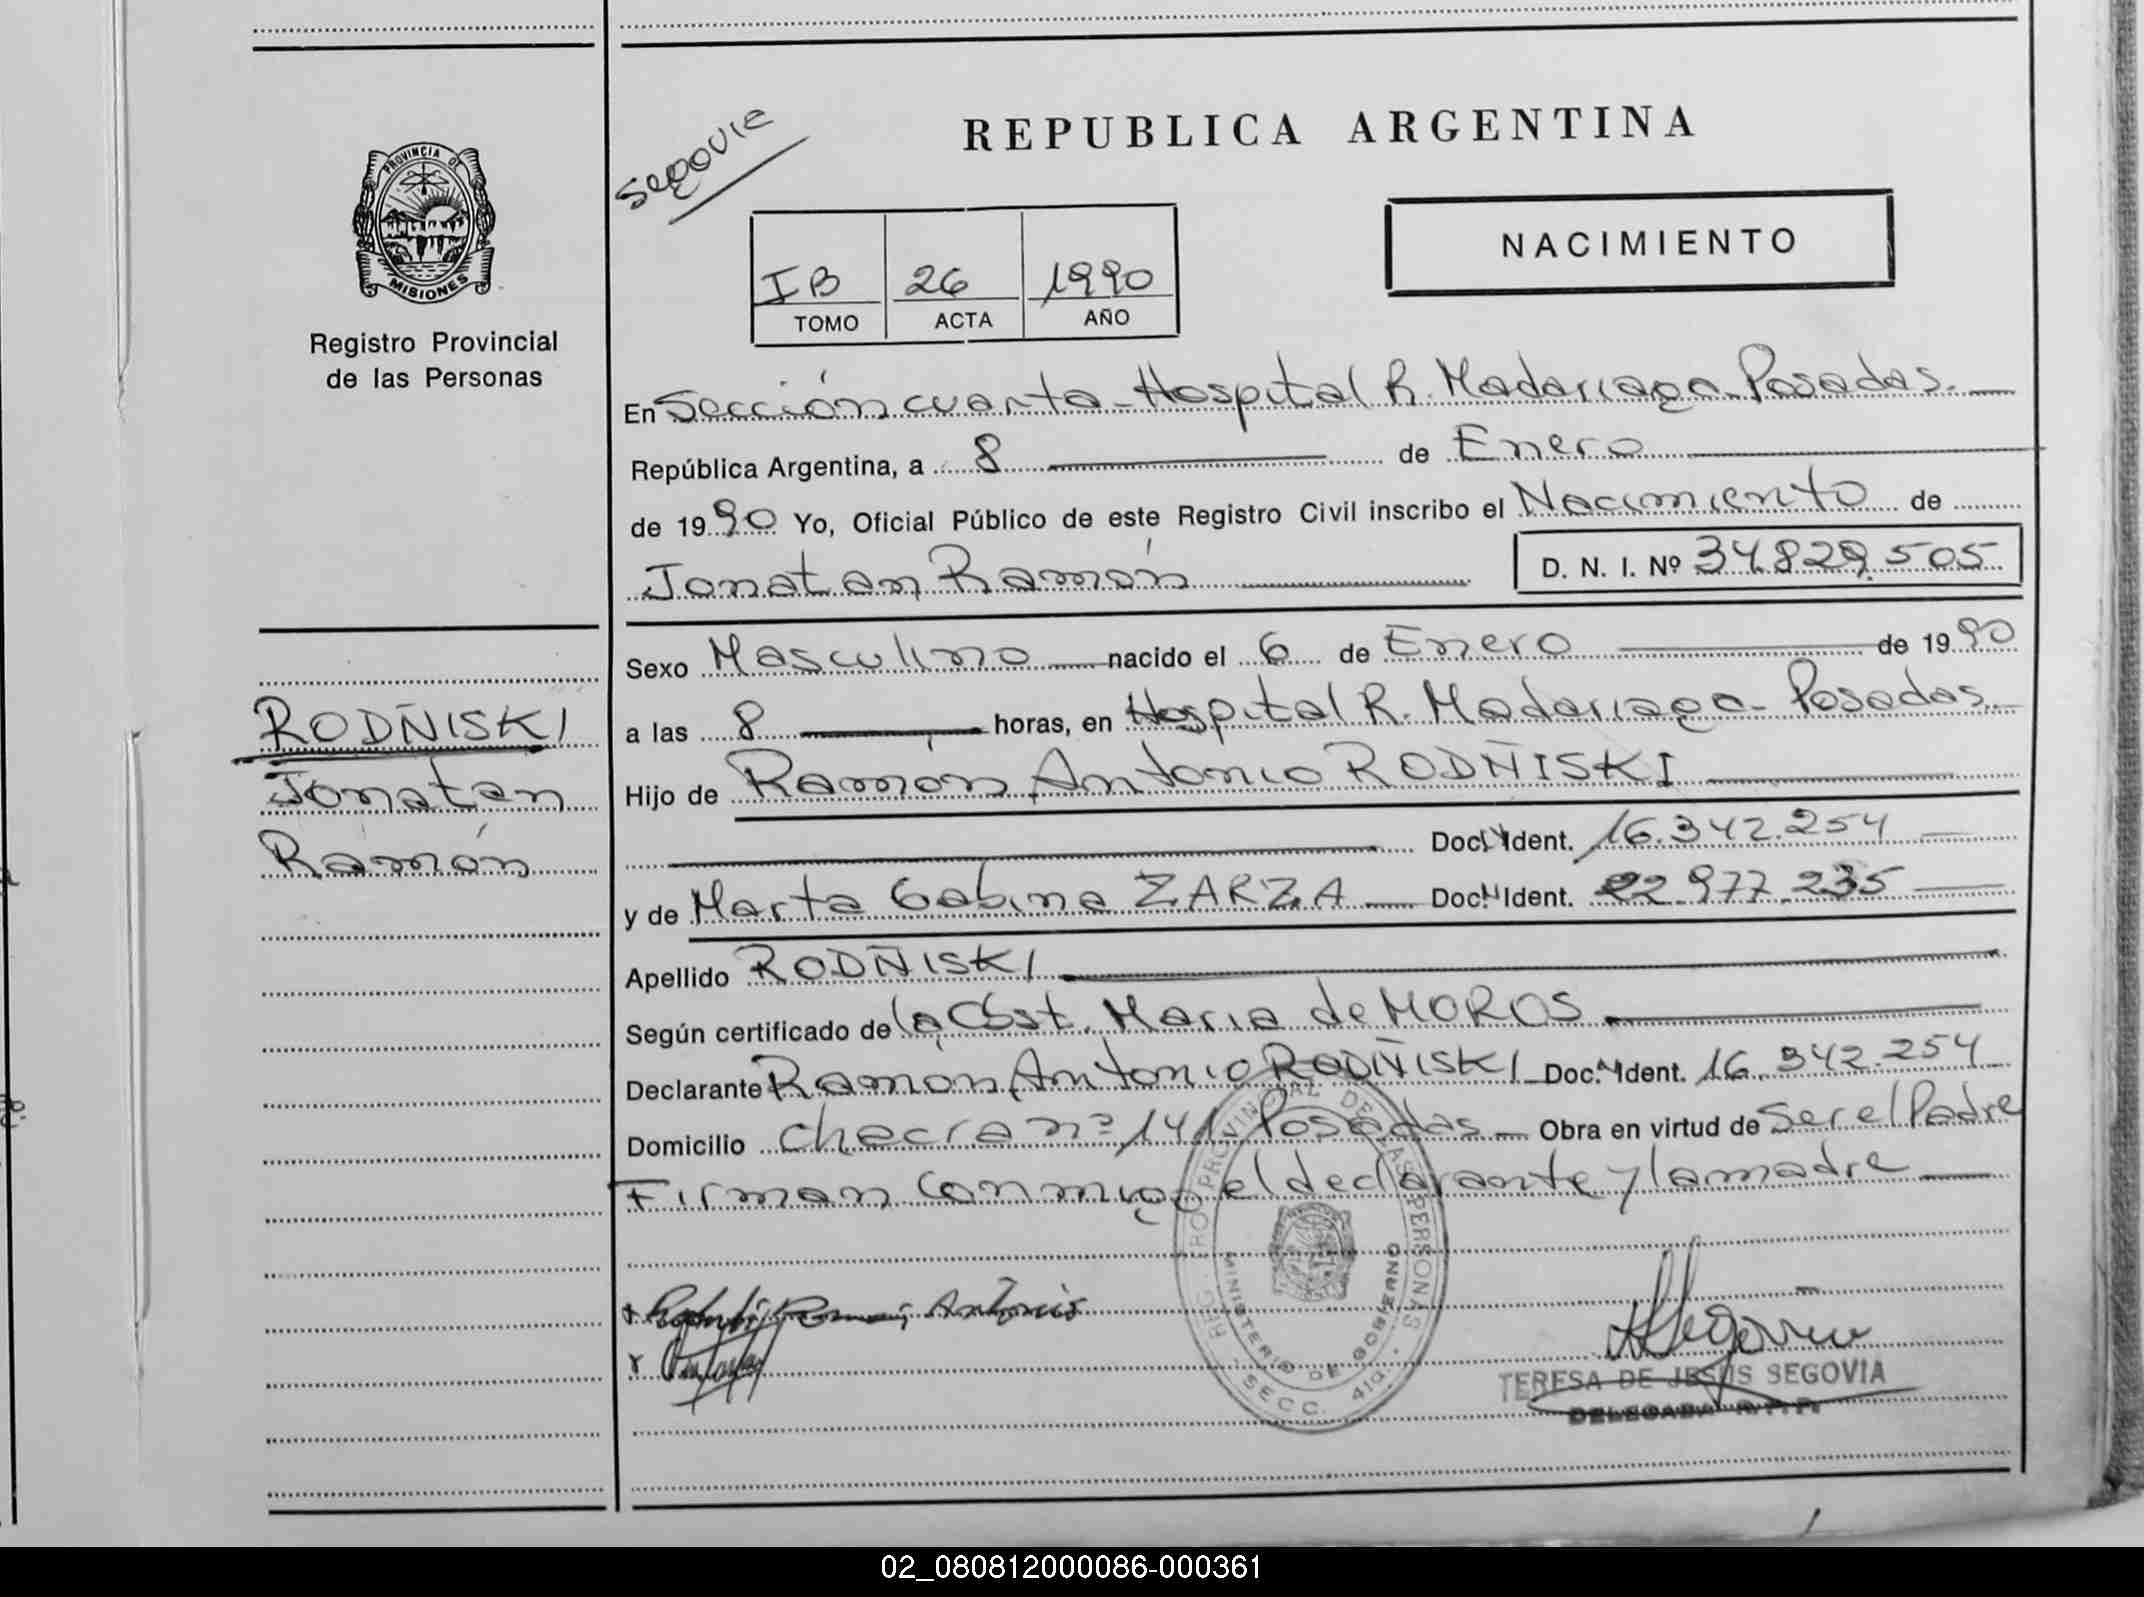 Segovia
REPUBLICA ARGENTINA
PROVINCIA DE
MISIONES
Registro Provincial
de las Personas
NACIMIENTO
IB 26 1990
TOMO ACTA AÑO
En Sección cuarta - Hospital R. Madariaga - Posadas.
República Argentina, a 8 de Enero
de 1990 Yo, Oficial Público de este Registro Civil inscribo el Nacimiento de
Jonatan Ramón D. N. I. Nº 34.829.505
Sexo Masculino nacido el 6 de Enero de 1990
a las 8 horas, en Hospital R. Madariaga - Posadas.
Hijo de Ramón Antonio RODÑISKI
Doc. Ident. 16.342.254
y de Marta Gabina ZARZA Doc. Ident. 22.977.235
Apellido RODÑISKI
Según certificado de la Obst. Maria de MOROS
Declarante Ramón Antonio RODÑISKI Doc. Ident. 16.342.254
Domicilio chacra nº 141 - Posadas - Obra en virtud de ser el Padre
Firman conmigo el declarante y la madre
RODÑISKI
Jonatan
Ramón
REG. PROVINCIAL DE LAS PERSONAS
MINISTERIO DE GOBIERNO
SECC. 4ta.
Antonio
Segovia
TERESA DE JESUS SEGOVIA
DELEGADA R.P.P.
02_080812000086-000361